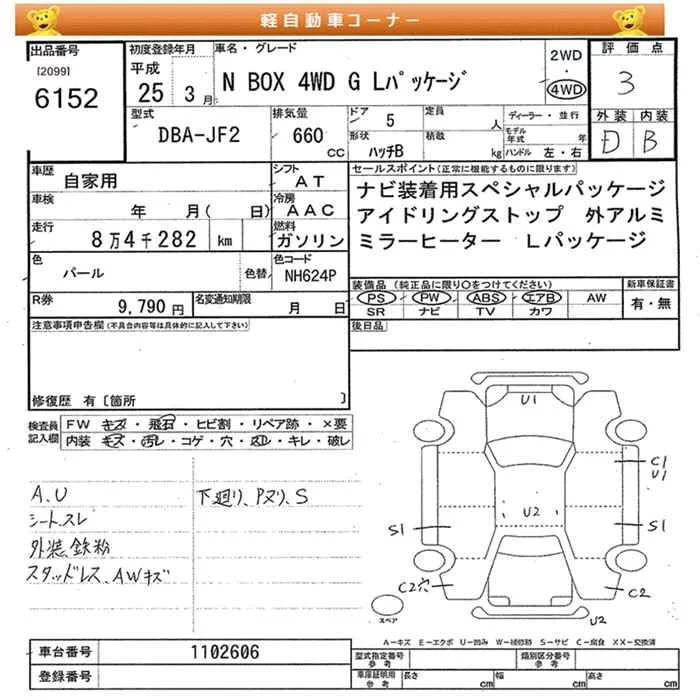 軽自動車コーナー
出品番号
[2099]
6152
初度登録年月
平成
25 3月
車名・グレード
N BOX 4WD G Lパッケージ
2WD
・
4WD
評価点
3
外装 内装
D B
型式
DBA-JF2
排気量
660
CC
ドア
5
定員
人
形状
ハッチB
積載
kg
ディーラー・並行
モデル年式
年
ハンドル 左・右
車歴
自家用
シフト
AT
車検
年 月( 日)
冷房
AAC
走行
8万4千282 km
燃料
ガソリン
色
パール
色替
色コード
NH624P
R券
9,790円
名変通知期限
月 日
セールスポイント(正常に機能するものに限ります)
ナビ装着用スペシャルパッケージ
アイドリングストップ 外アルミ
ミラーヒーター Lパッケージ
装備品 (純正品に限り○をつけてください)
PS PW ABS エアB AW
SR ナビ TV カワ
新車保証書
有・無
後日品
注意事項申告欄(不具合内容等は具体的に記入して下さい)
修復歴 有[箇所 ]
検査員
記入欄
FW キズ・飛石・ヒビ割・リペア跡・×要
内装 キズ・汚レ・コゲ・穴・スレ・キレ・破レ
A.U
シートスレ
外装鉄粉
スタッドレス、AWキズ
下廻り、Pヌリ、S
U1
C1
U1
U2
S1
S1
C2穴
C2
U2
スペア
A-キズ E-エクボ U-凹み W-補修跡 S-サビ C-腐食 XX-交換済
車台番号
1102606
登録番号
型式指定番号
参考
類別区分番号
参考
車庫証明用
参考
長さ
cm
幅
cm
高さ
cm